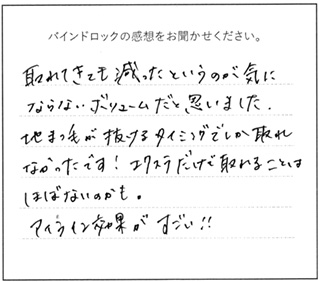 バインドロックの感想をお聞かせください。
取れてきても減ったというのが気に
ならないボリュームだと思いました。
地まつ毛が抜けるタイミングでしか取れ
なかったです！エクステだけで取れることは
ほぼないのかも。
アイライン効果がすごい!!